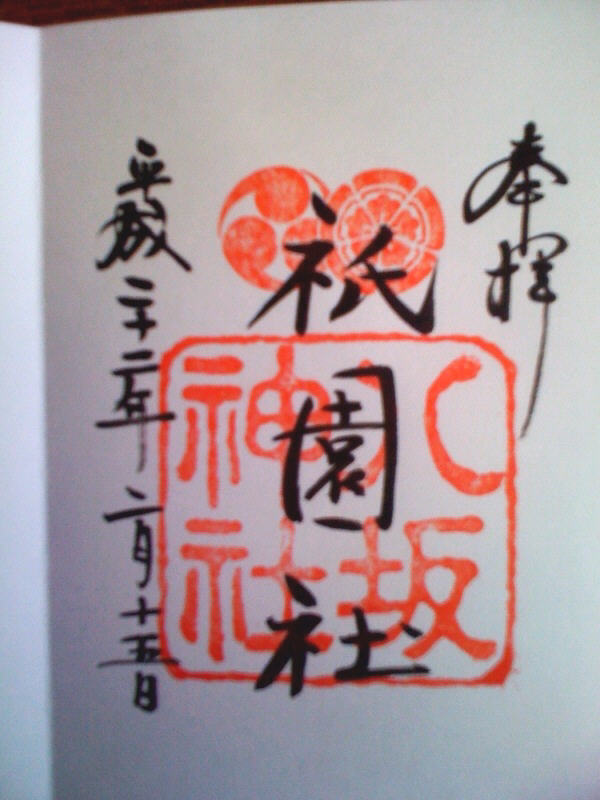 奉拝
八坂
神社
祇園社
平成二十二年二月十五日